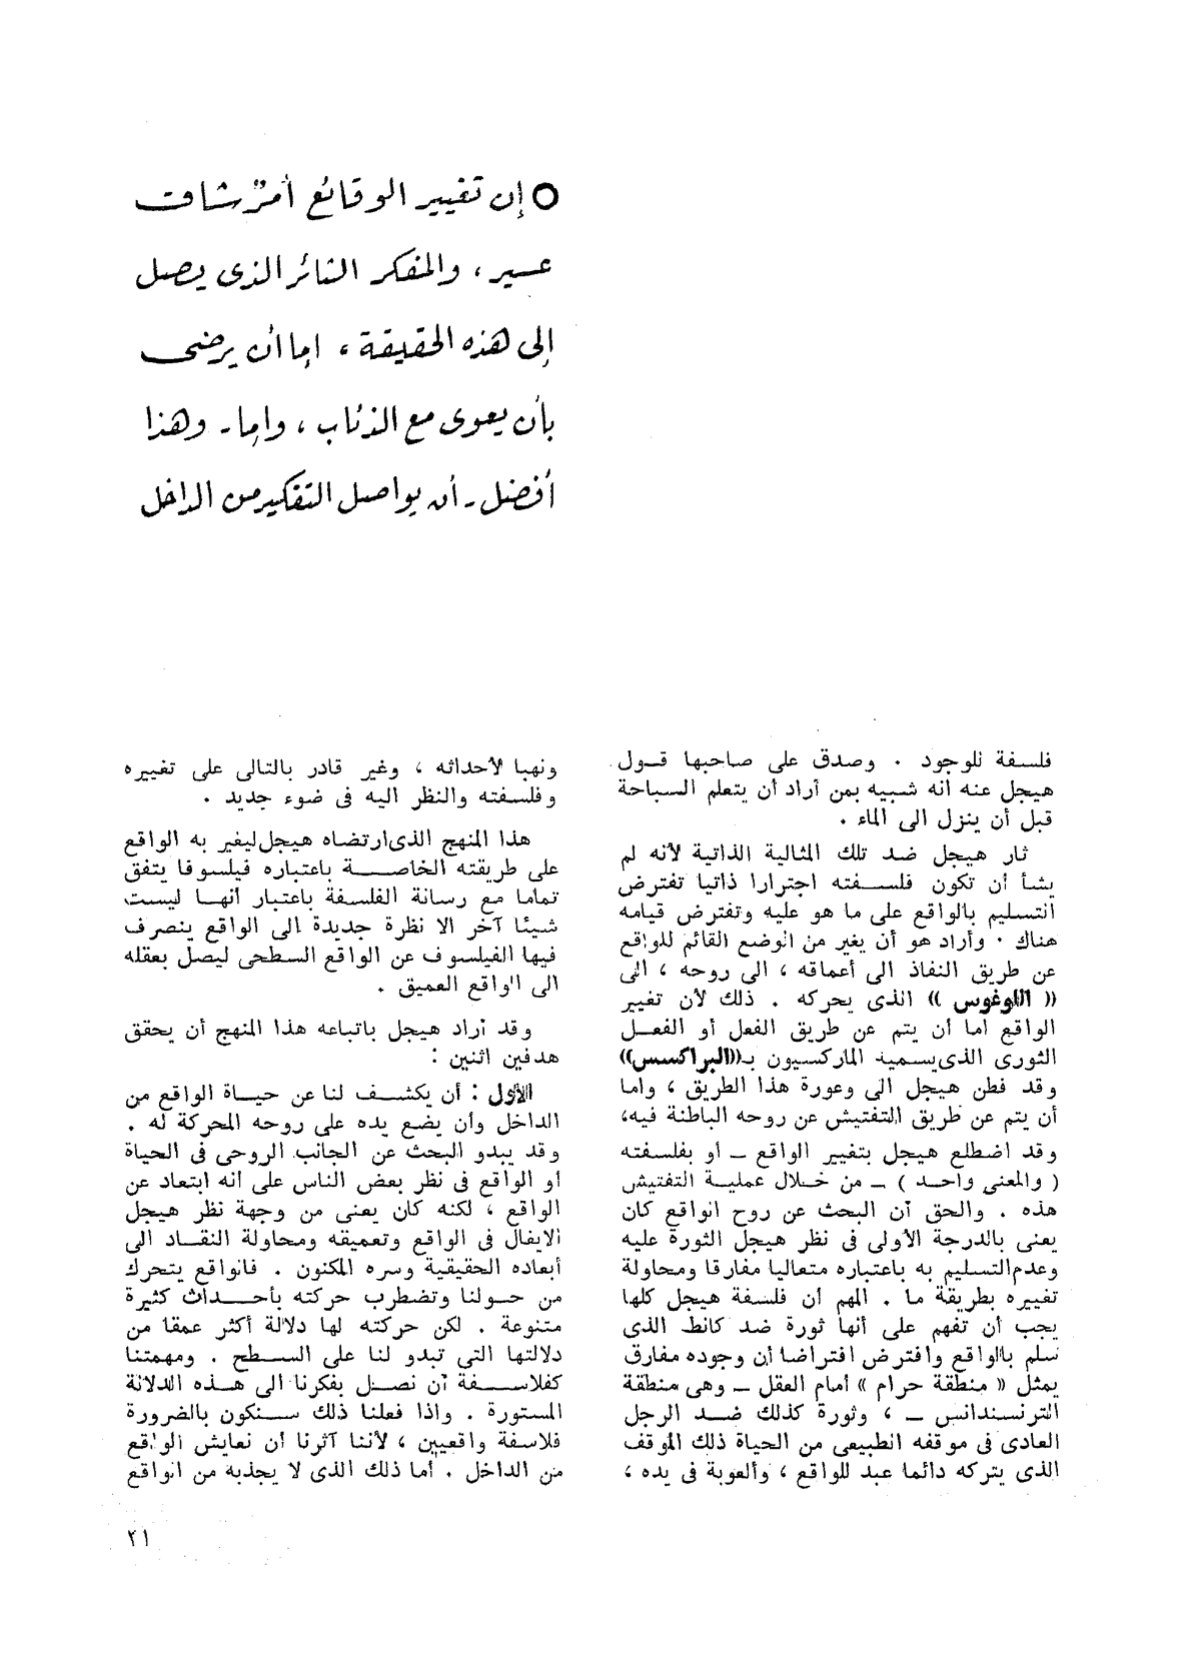 ○ إن تغيير الوقائع أمرٌ شاق
عسير ، والمفكر الثائر الذى يصل
إلى هذه الحقيقة ، إما أن يرضى
بأن يعوى مع الذئاب ، وإما ـ وهذا
أفضل ـ أن يواصل التفكير من الداخل
فلسفة للوجود . وصدق على صاحبها قول
هيجل عنه أنه شبيه بمن أراد أن يتعلم السباحة
قبل أن ينزل الى الماء .
ثار هيجل ضد تلك المثالية الذاتية لأنه لم
يشأ أن تكون فلسفته اجترارا ذاتيا تفترض
التسليم بالواقع على ما هو عليه وتفترض قيامه
هناك . وأراد هو أن يغير من الوضع القائم للواقع
عن طريق النفاذ الى أعماقه ، الى روحه ، الى
(( اللوغوس )) الذى يحركه . ذلك لأن تغيير
الواقع اما أن يتم عن طريق الفعل أو الفعل
الثورى الذى يسميه الماركسيون بـ((البراكسس))
وقد فطن هيجل الى وعورة هذا الطريق ، واما
أن يتم عن طريق التفتيش عن روحه الباطنة فيه،
وقد اضطلع هيجل بتغيير الواقع ــ أو بفلسفته
( والمعنى واحد ) ــ من خلال عملية التفتيش
هذه . والحق أن البحث عن روح الواقع كان
يعنى بالدرجة الأولى فى نظر هيجل الثورة عليه
وعدم التسليم به باعتباره متعاليا مفارقا ومحاولة
تغييره بطريقة ما . المهم أن فلسفة هيجل كلها
يجب أن تفهم على أنها ثورة ضد كانط الذى
سلم بالواقع وافترض افتراضا أن وجوده مفارق
يمثل « منطقة حرام » أمام العقل ــ وهى منطقة
الترنسندانس ــ ، وثورة كذلك ضد الرجل
العادى فى موقفه الطبيعى من الحياة ذلك الموقف
الذى يتركه دائما عبد للواقع ، وألعوبة فى يده ،
ونهبا لأحداثه ، وغير قادر بالتالى على تغييره
وفلسفته والنظر اليه فى ضوء جديد .
هذا المنهج الذى ارتضاه هيجل ليغير به الواقع
على طريقته الخاصة باعتباره فيلسوفا يتفق
تماما مع رسالة الفلسفة باعتبار أنها ليست
شيئا آخر الا نظرة جديدة الى الواقع ينصرف
فيها الفيلسوف عن الواقع السطحى ليصل بعقله
الى الواقع العميق .
وقد أراد هيجل باتباعه هذا المنهج أن يحقق
هدفين اثنين :
الأول : أن يكشف لنا عن حياة الواقع من
الداخل وأن يضع يده على روحه المحركة له .
وقد يبدو البحث عن الجانب الروحى فى الحياة
أو الواقع فى نظر بعض الناس على انه ابتعاد عن
الواقع ، لكنه كان يعنى من وجهة نظر هيجل
الايغال فى الواقع وتعميقه ومحاولة النفاذ الى
أبعاده الحقيقية وسره المكنون . فالواقع يتحرك
من حولنا وتضطرب حركته بأحداث كثيرة
متنوعة . لكن حركته لها دلالة أكثر عمقا من
دلالتها التى تبدو لنا على السطح . ومهمتنا
كفلاسفة أن نصل بفكرنا الى هذه الدلالة
المستورة . واذا فعلنا ذلك سنكون بالضرورة
فلاسفة واقعيين ، لأننا آثرنا أن نعايش الواقع
من الداخل . أما ذلك الذى لا يجذبه من الواقع
٢١